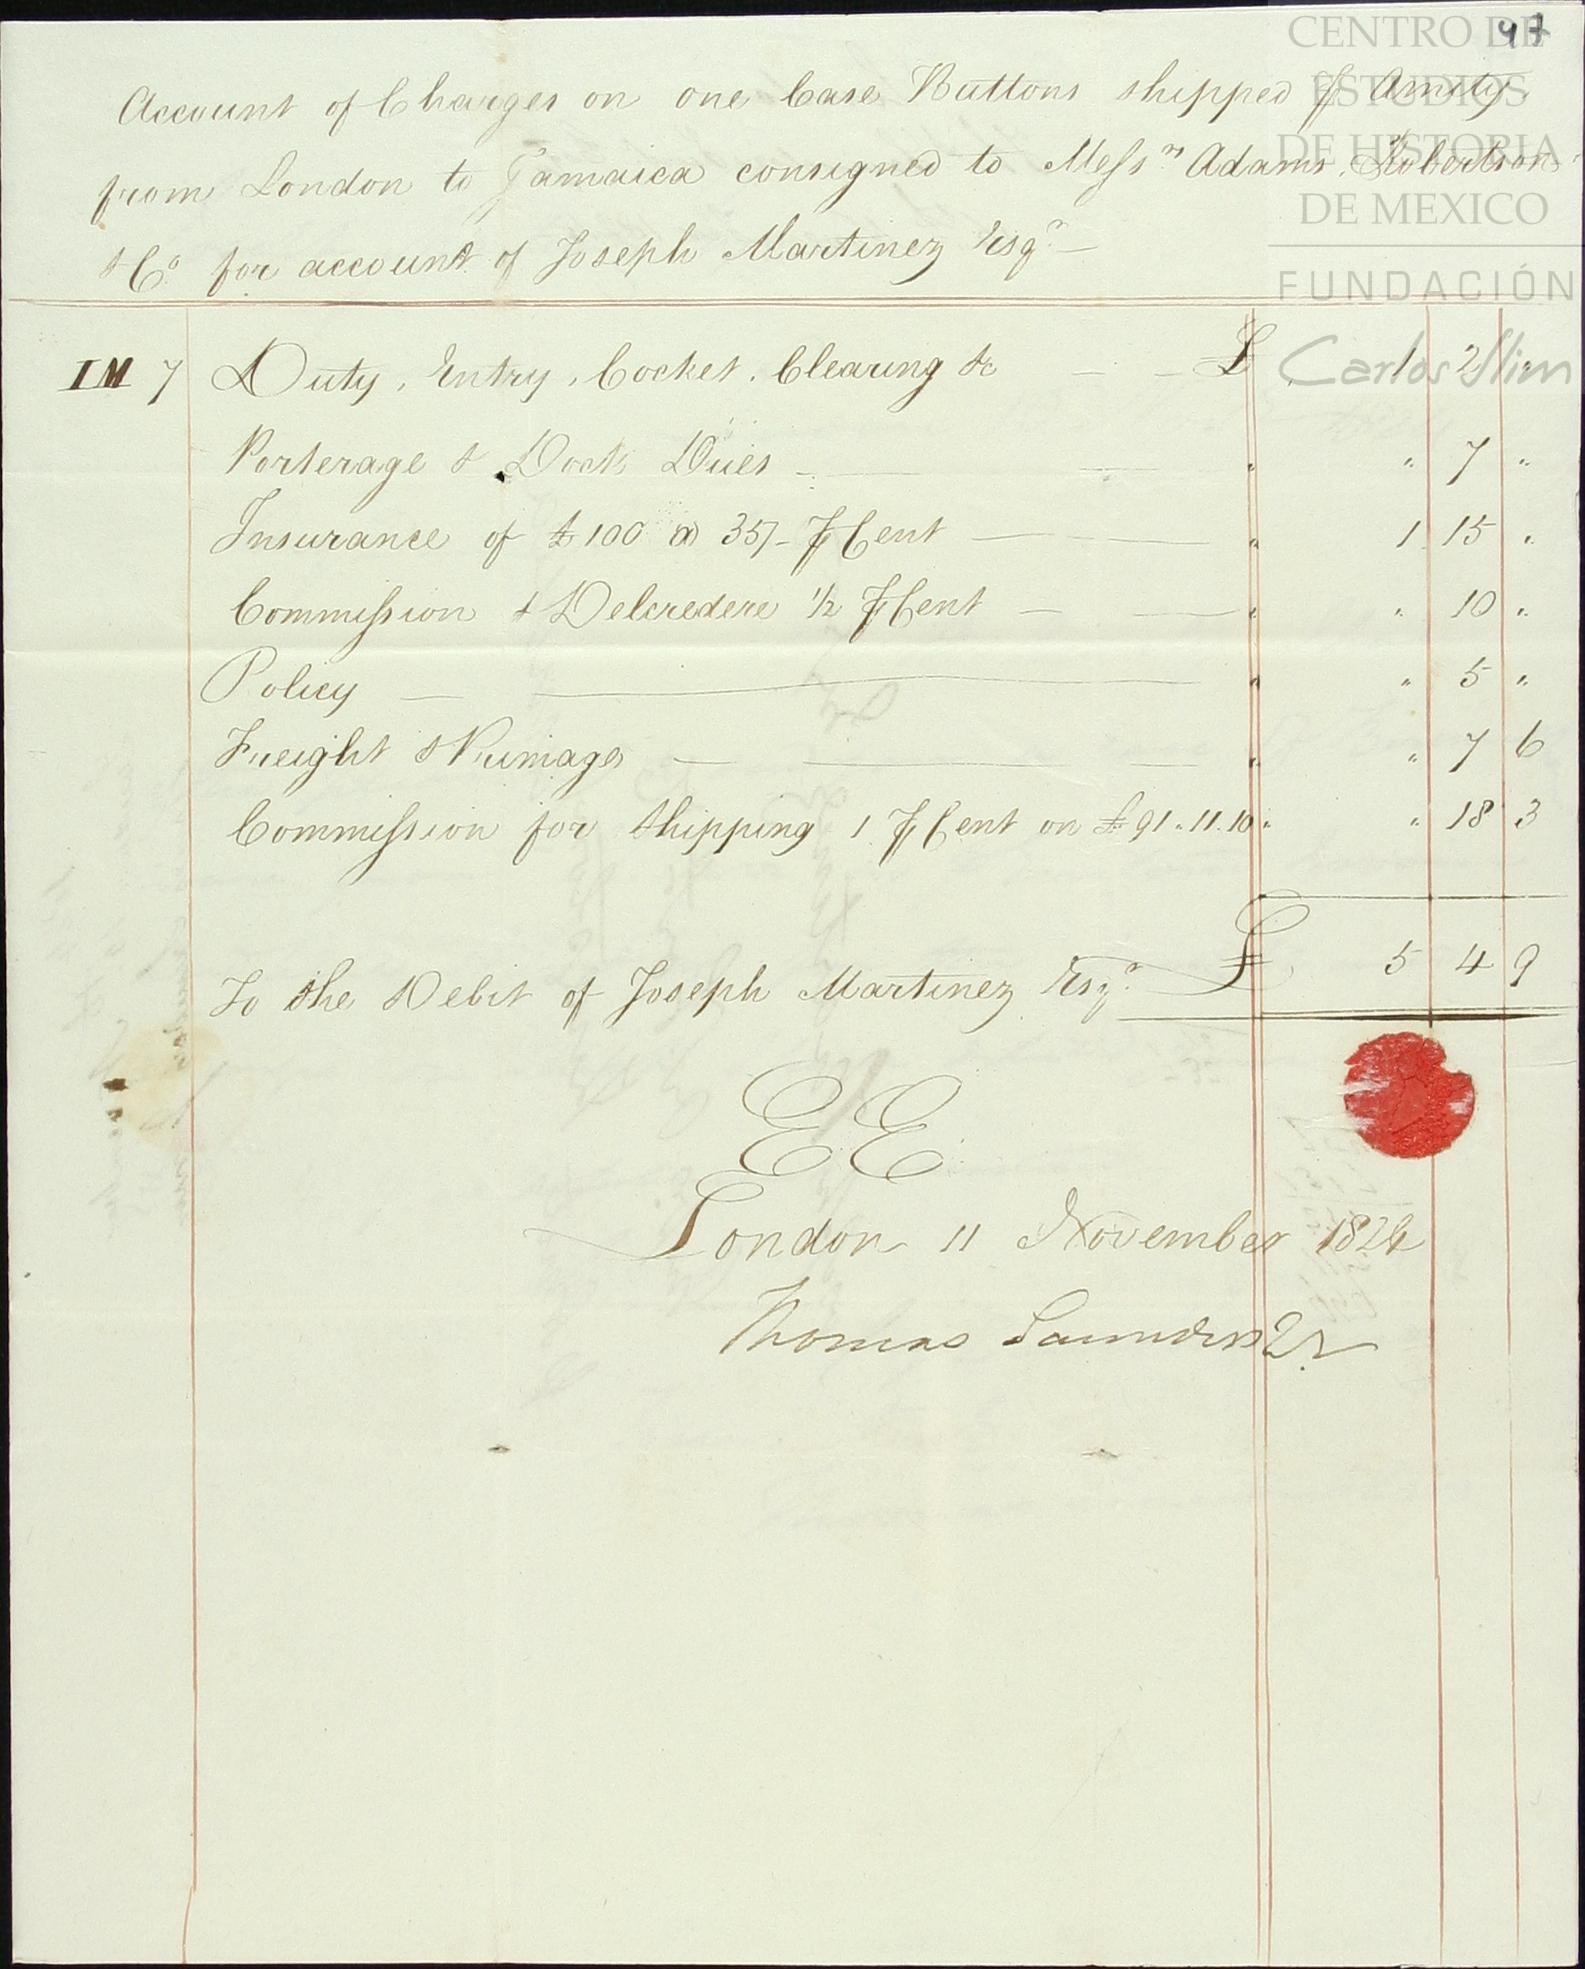 97
CENTRO DE
ESTUDIOS
DE HISTORIA
DE MEXICO
FUNDACIÓN
Carlos Slim
Account of Charges on one Case Buttons shipped ⅌ Amity
from London to Jamaica consigned to Messrs Adams, Robertson
& Co for account of Joseph Martinez Esqr
IM 7 Duty, Entry, Cocket, Clearing &c £ 1 2 "
Porterage & Dock Dues " " 7 "
Insurance of £100 @ 35/- ⅌ Cent " 1 15 "
Commission & Delcredere 1/2 ⅌ Cent " " 10 "
Policy " " 5 "
Freight & Primage " " 7 6
Commission for Shipping 1 ⅌ Cent on £91.11.10 " " 18 3
To the Debit of Joseph Martinez Esqr £ 5 4 9
EE
London 11 November 1824
Thomas Saunders